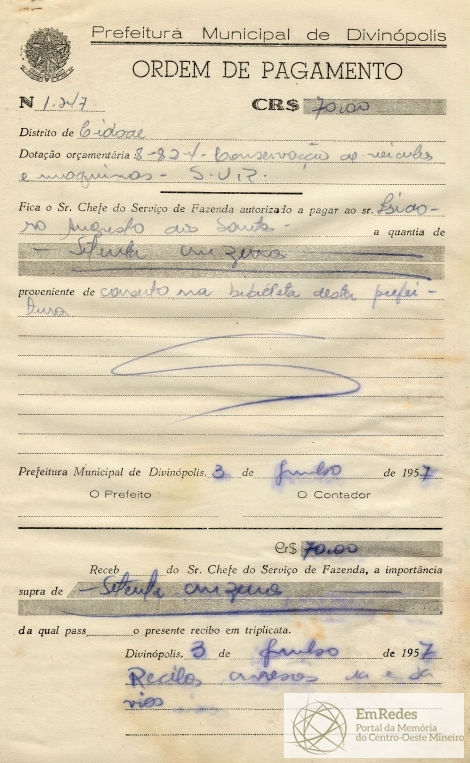 Prefeitura Municipal de Divinópolis
ORDEM DE PAGAMENTO
N 1.247 CR$ 70,00
Distrito de Cidade
Dotação orçamentária 8-82-4- Conservação de veiculos
e maquinas - S.V.P.
Fica o Sr. Chefe do Serviço de Fazenda autorizado a pagar ao sr. Isido-
ro Augusto dos Santos - a quantia de
- Setenta cruzeiros -
proveniente de conserto na bicicleta desta prefei-
tura
Prefeitura Municipal de Divinópolis, 3 de Junho de 1957
O Prefeito O Contador
Cr$ 70,00
Receb do Sr. Chefe do Serviço de Fazenda, a importância
supra de - Setenta cruzeiros
da qual pass o presente recibo em triplicata.
Divinópolis, 3 de Junho de 1957
Recibos
EmRedes
Portal da Memória
do Centro-Oeste Mineiro